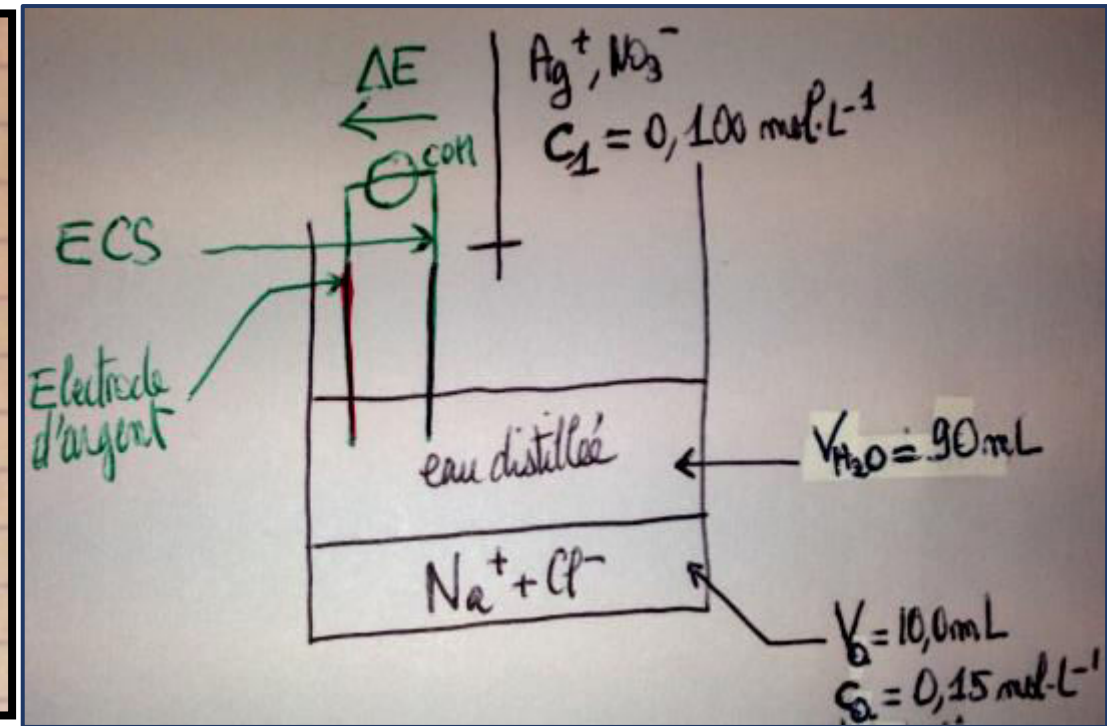 ΔE
COM
Ag⁺, NO₃⁻
C₁ = 0,100 mol.L⁻¹
ECS
Electrode
d'argent
eau distillée
V_H₂O = 90 mL
Na⁺ + Cl⁻
V₀ = 10,0 mL
C₀ = 0,15 mol.L⁻¹